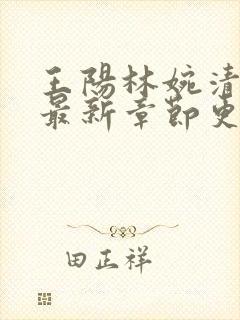 王陽林婉清
最新章節更
田正祥